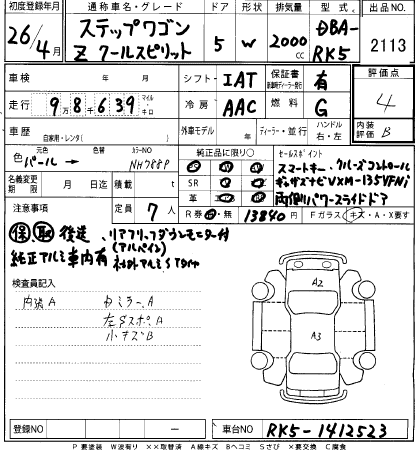 初度登録年月 通称車名・グレード ドア 形状 排気量 型式 出品NO
26/4月 ステップワゴン Z クールスピリット 5 W 2000cc DBA-RK5 2113
車検 年 月 シフト IAT 保証書 有 評価点
走行 9万8千639 マイル キロ 冷房 AAC 燃料 G 4
車歴 自家用・レンタ( ) 外車モデル 年 ディーラー・並行 ハンドル 右・左 内装評価 B
元色 色替 カラーNO 純正品に限り○ セールスポイント
色 パール→ NH788P スマートキー、クルーズコントロール
名義変更期限 月 日迄 積載 t SR ギャザズナビVXM-135VFNi
革 両側パワースライドドア
注意事項 定員 7人 R券 有・無 13840円 Fガラス キズ・A・X要す
保、取 後送、リアフリップダウンモニター付
(アルパイン)
純正アルミ車内有 社外アルミSタイヤ
検査員記入
内装A カミラーA
左Sスポ.A
小キズB
A2
A3
登録NO ー 車台NO RK5-1412523
P要塗装 W波有り ××取替済 A線キズ Bヘコミ Sさび ×要交換 C腐食